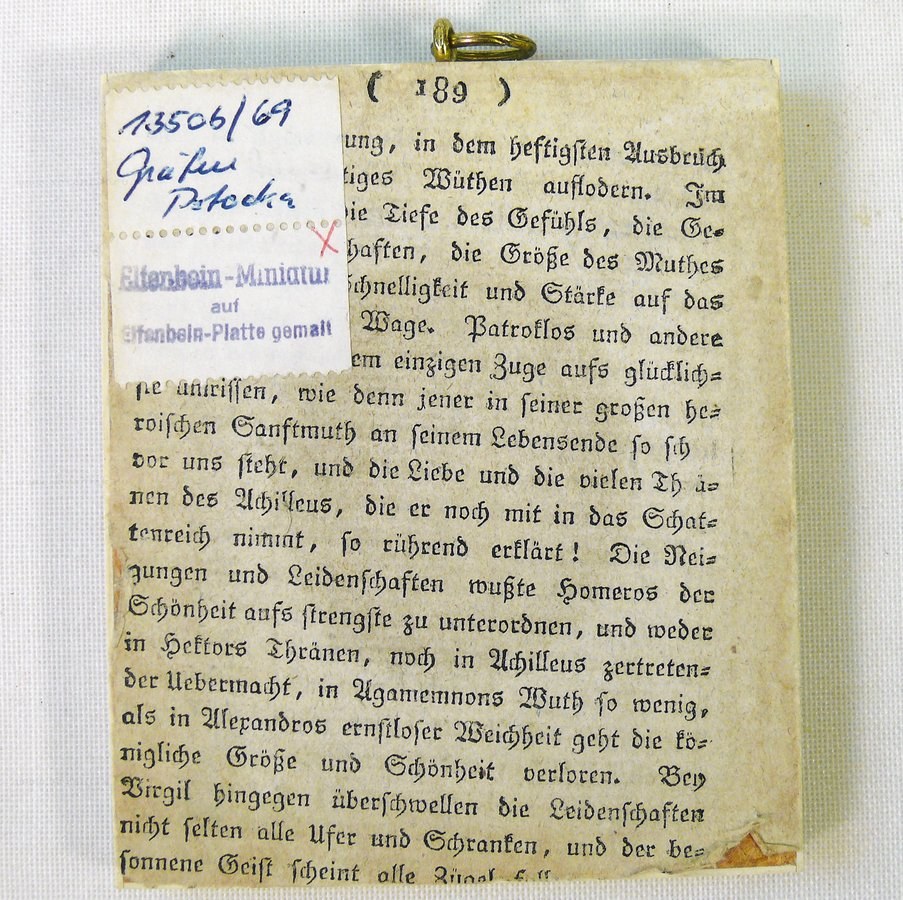 13506/69
Gräfin
Potocka
X
Elfenbein-Miniatur
auf
Elfenbein-Platte gemalt
( 189 )
ung, in dem heftigſten Ausbruch
tiges Wüthen auflodern. Im
die Tiefe des Gefühls, die Ge-
haften, die Größe des Muthes
Schnelligkeit und Stärke auf das
Wage. Patroklos und andere
em einzigen Zuge aufs glücklich-
ſte umriſſen, wie denn jener in ſeiner großen he-
roiſchen Sanftmuth an ſeinem Lebensende ſo ſch
vor uns ſteht, und die Liebe und die vielen Thrä-
nen des Achilleus, die er noch mit in das Schat-
tenreich nimmt, ſo rührend erklärt! Die Nei-
gungen und Leidenſchaften wußte Homeros der
Schönheit aufs ſtrengſte zu unterordnen, und weder
in Hektors Thränen, noch in Achilleus zertreten-
der Uebermacht, in Agamemnons Wuth ſo wenig,
als in Alexandros ernſtloſer Weichheit geht die kö-
nigliche Größe und Schönheit verloren. Bey
Virgil hingegen überſchwellen die Leidenſchaften
nicht ſelten alle Ufer und Schranken, und der be-
ſonnene Geiſt ſcheint alle Zügel